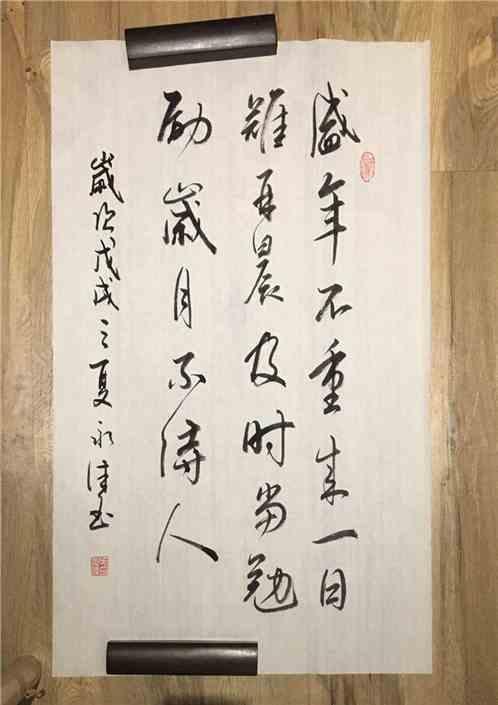 盛年不重来一日
難再晨及时當勉
励歲月不待人
歲次戊戌之夏永佳书